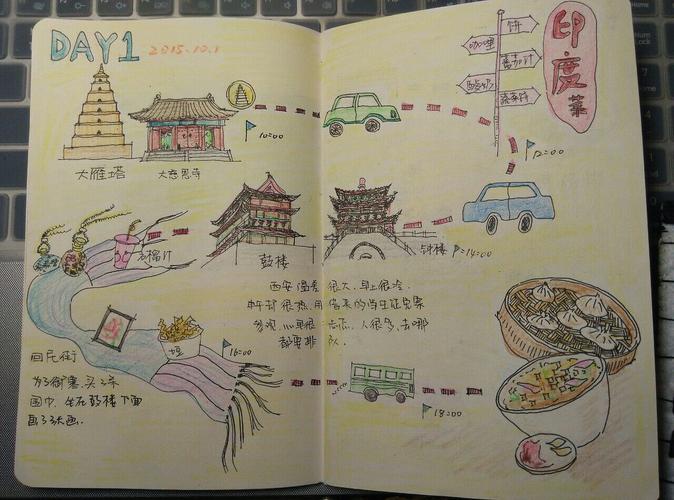 DAY1 2015.10.1
大雁塔
大慈恩寺
10:00
饼
咖喱
番茄汁
酸奶
印度菜
12:00
鼓楼
钟楼
14:00
石榴汁
西安温差很大,早上很冷.
中午却很热,用
发现心里很
人很多,去哪
都要排队.
回民街
为了御寒,买了条
围巾,坐在鼓楼下面
画了张画.
16:00
18:00